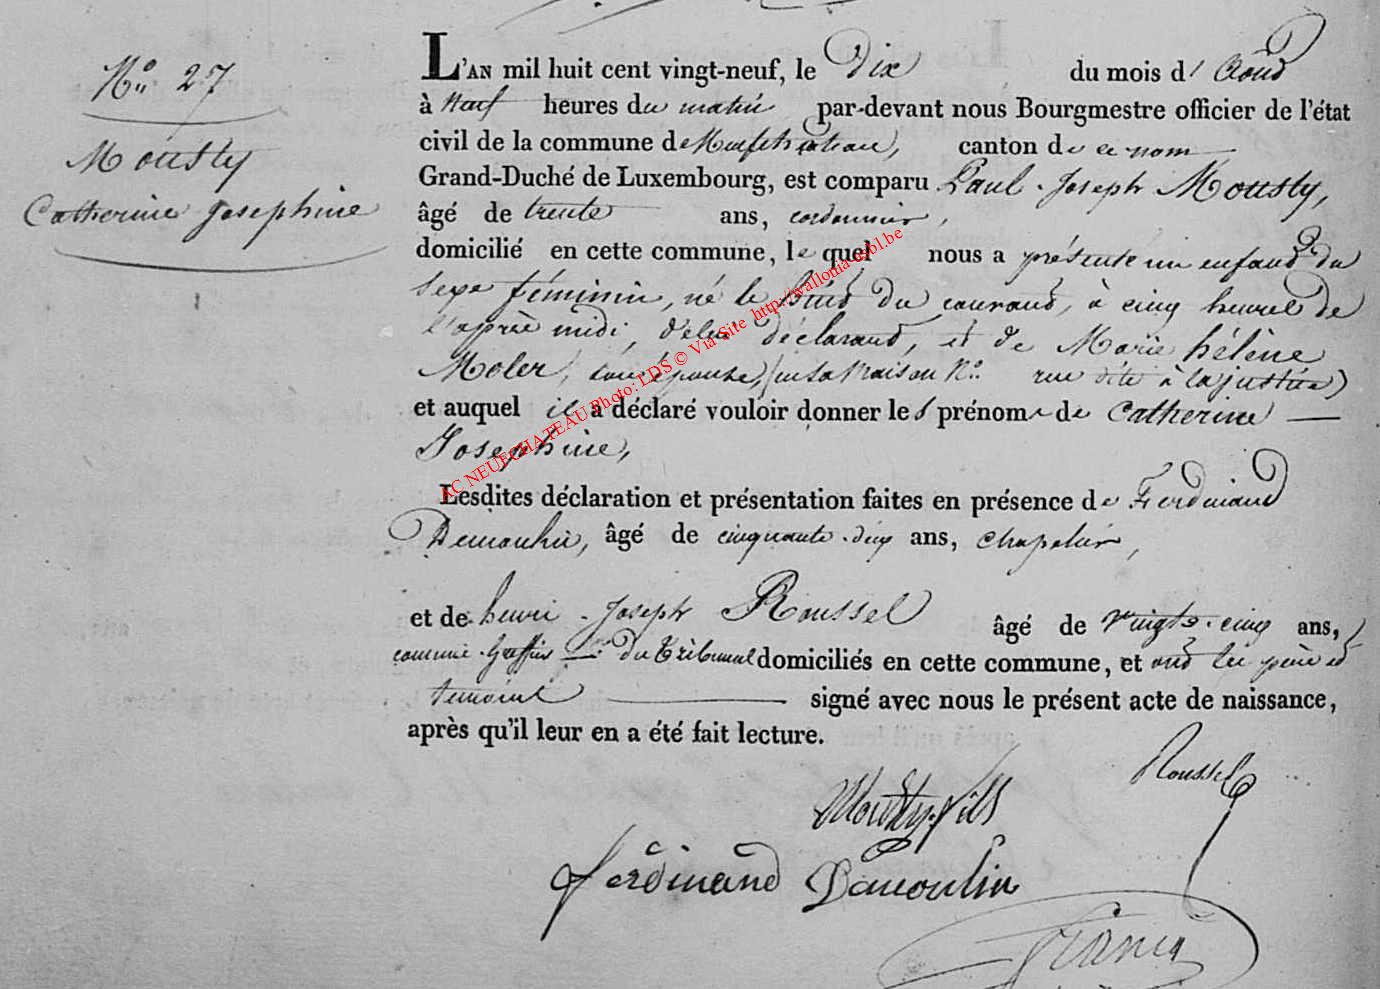 N.° 27
Mousty
Catherine Josephine
L'AN mil huit cent vingt-neuf, le Dix du mois d' Aoud
à Neuf heures du matin par-devant nous Bourgmestre officier de l'état
civil de la commune de Neufchateau, canton de ce nom
Grand-Duché de Luxembourg, est comparu Paul Joseph Mousty,
âgé de trente ans, cordonnier,
domicilié en cette commune, le quel nous a présenté un enfand du
sexe féminin, né le huid du courand, à cinq heures de
l'après midi, d'elui déclarand, et de Marie hélène
Moler, son épouse, (en sa Maison N.° rue dite à la justice)
et auquel il a déclaré vouloir donner les prénoms de Catherine
Josephine,
Lesdites déclaration et présentation faites en présence de Ferdinand
Demoulin, âgé de cinquante deux ans, chapelier,
et de henri Joseph Roussel âgé de vingt-cinq ans,
commis Greffier du Tribunal domiciliés en cette commune, et ond les père et
temoins signé avec nous le présent acte de naissance,
après qu'il leur en a été fait lecture.
Roussel
Mousty fils
ferdinand Damoulin
AC NEUFCHATEAU Photo: LDS © Via Site http://wallonia-asbl.be